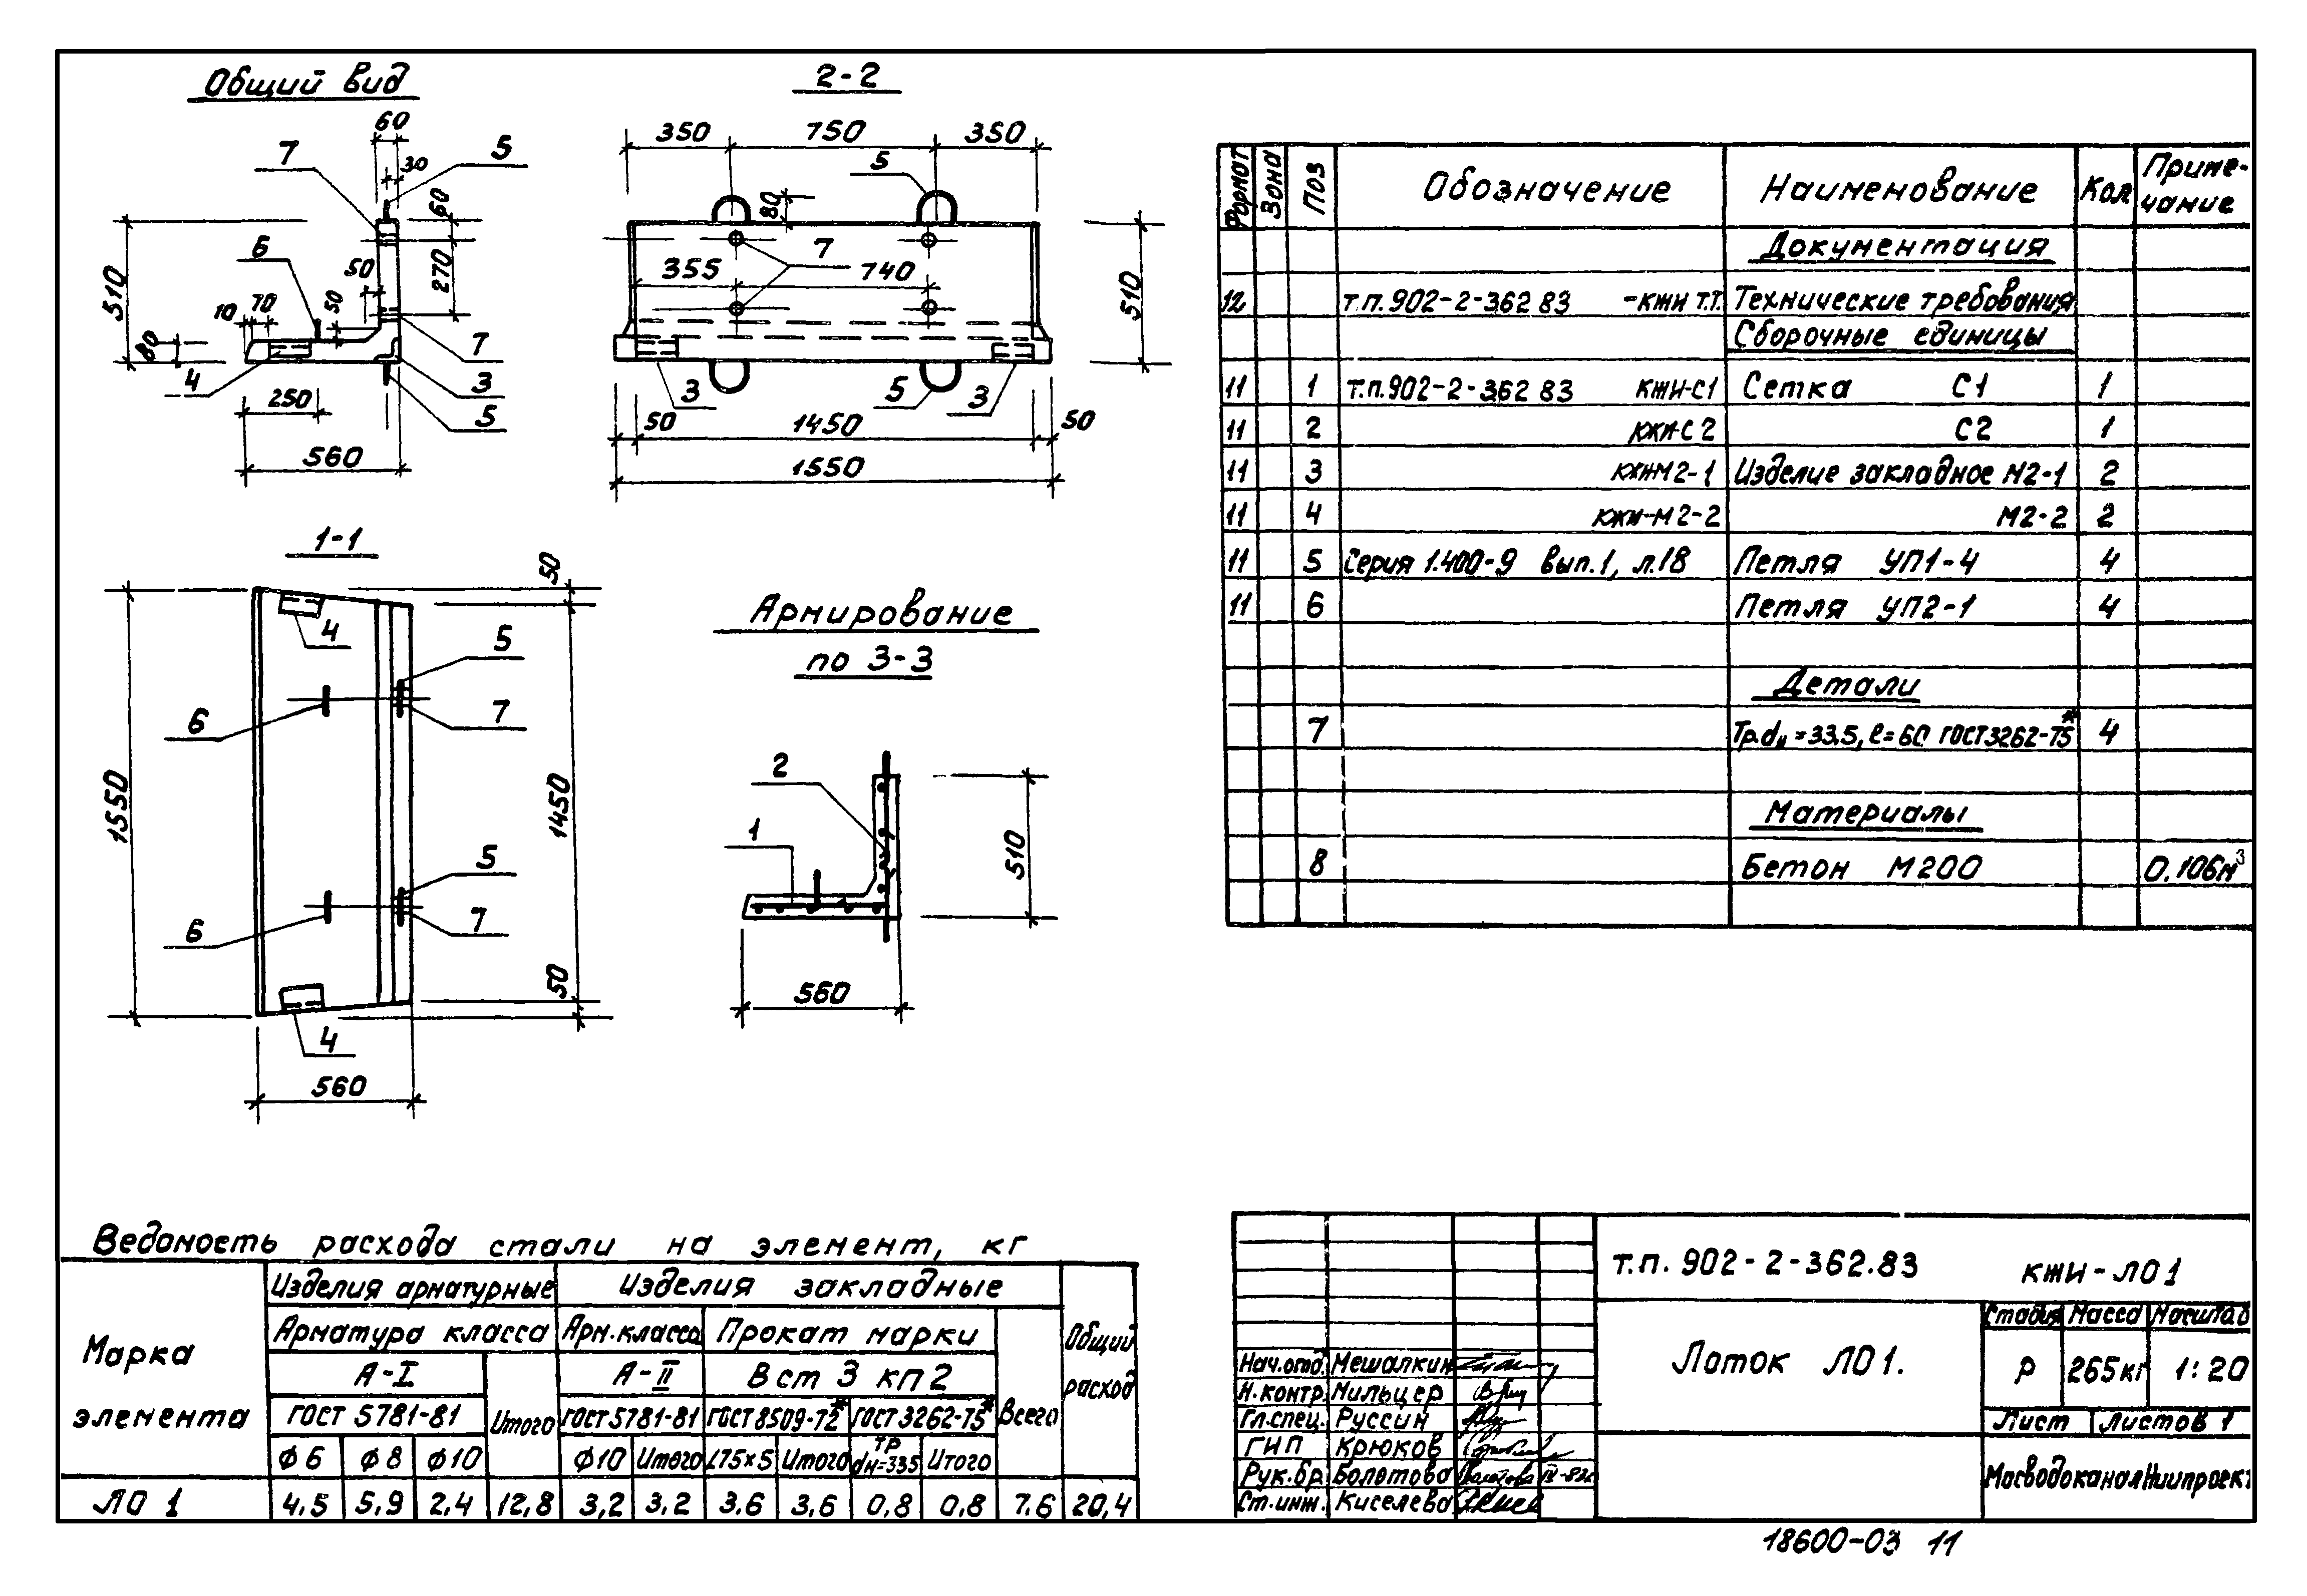 Общий вид
60
7
5
30
60
510
6
50
270
10
70
50
80
7
4
3
250
5
560
2-2
350
750
350
5
80
7
355
740
510
3
5
3
50
1450
50
1550
1-1
50
4
5
6
7
1550
1450
5
6
7
50
4
560
Армирование
по 3-3
2
1
510
560
Формат Зона Поз Обозначение Наименование Кол. Приме-
чание
Документация
12 т.п.902-2-362 83 -кжи т.т. Технические требования
Сборочные единицы
11 1 т.п.902-2-362 83 кжи-С1 Сетка С1 1
11 2 кжи-С2 С2 1
11 3 кжи-М2-1 Изделие закладное М2-1 2
11 4 кжи-М2-2 М2-2 2
11 5 Серия 1.400-9 вып.1, л.18 Петля УП1-4 4
11 6 Петля УП2-1 4
Детали
7 Тр.dн=33.5, ℓ=60 ГОСТ3262-75* 4
Материалы
8 Бетон М200 0.106м³
Ведомость расхода стали на элемент, кг
Марка
элемента
Изделия арматурные Изделия закладные Общий
расход
Арматура класса Арм.класса Прокат марки
А-I Итого А-II В ст 3 кп 2 Всего
ГОСТ 5781-81 ГОСТ5781-81 ГОСТ8509-72* ГОСТ3262-75*
ф6 ф8 ф10 ф10 Итого L75×5 Итого Тр dн=33.5 Итого
ЛО 1 4,5 5,9 2,4 12,8 3,2 3,2 3,6 3,6 0,8 0,8 7,6 20,4
т.п. 902-2-362.83 кжи-ЛО1
Лоток ЛО1.
Стадия Масса Масштаб
Р 265кг 1:20
Лист Листов 1
МосводоканалНиипроект
Нач.отд. Мешалкин
Н.контр. Мильцер
Гл.спец. Руссин
ГИП Крюков
Рук.бр. Болотова
Ст.инж. Киселева
18600-03 11